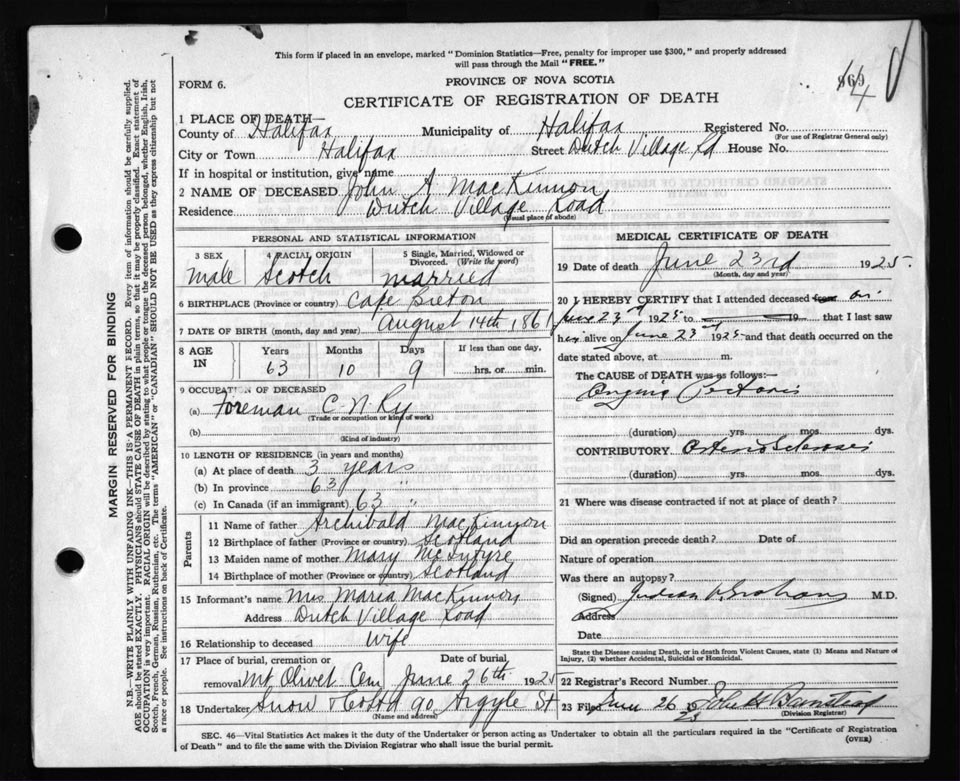 This form if placed in an envelope, marked "Dominion Statistics—Free, penalty for improper use $300," and properly addressed
will pass through the Mail "FREE."
FORM 6.
PROVINCE OF NOVA SCOTIA
CERTIFICATE OF REGISTRATION OF DEATH
1 PLACE OF DEATH—
County of Halifax Municipality of Halifax Registered No.
(For use of Registrar General only)
City or Town Halifax Street Dutch Village Rd House No.
If in hospital or institution, give name
2 NAME OF DECEASED John A MacKinnon
Residence Dutch Village Road
(Usual place of abode)
PERSONAL AND STATISTICAL INFORMATION
3 SEX 4 RACIAL ORIGIN 5 Single, Married, Widowed or
Divorced. (Write the word)
Male Scotch married
6 BIRTHPLACE (Province or country) Cape Breton
7 DATE OF BIRTH (month, day and year) August 14th 1861
8 AGE IN Years Months Days If less than one day,
63 10 9 hrs. or min.
9 OCCUPATION OF DECEASED
(a) Foreman C-N Ry
(Trade or occupation or kind of work)
(b)
(Kind of industry)
10 LENGTH OF RESIDENCE (in years and months)
(a) At place of death 3 years
(b) In province 63 "
(c) In Canada (if an immigrant) 63 "
Parents
11 Name of father Archibald MacKinnon
12 Birthplace of father (Province or country) Scotland
13 Maiden name of mother Mary McIntyre
14 Birthplace of mother (Province or country) Scotland
15 Informant's name Mrs Maria MacKinnon
Address Dutch Village Road
16 Relationship to deceased Wife
17 Place of burial, cremation or Date of burial
removal Mt Olivet Cem June 26th 1925
18 Undertaker Snow & Co Ltd 90 Argyle St
(Name and address)
MEDICAL CERTIFICATE OF DEATH
19 Date of death June 23rd 1925
(Month, day and year)
20 I HEREBY CERTIFY that I attended deceased from on
June 23rd 1925 to 19 that I last saw
him alive on June 23rd 1925 and that death occurred on the
date stated above, at m.
The CAUSE of DEATH was as follows:
Angina Pectoris
(duration) yrs. mos. dys.
CONTRIBUTORY. Arterio Sclerosis
(duration) yrs. mos. dys.
21 Where was disease contracted if not at place of death?
Did an operation precede death? Date of
Nature of operation
Was there an autopsy?
(Signed) Judson V. Graham M.D.
Address
Date
State the Disease causing Death, or in death from Violent Causes, state (1) Means and Nature of
Injury, (2) whether Accidental, Suicidal or Homicidal.
22 Registrar's Record Number
23 Filed June 26 1925 John H
(Division Registrar)
SEC. 46—Vital Statistics Act makes it the duty of the Undertaker or person acting as Undertaker to obtain all the particulars required in the "Certificate of Registration
of Death" and to file the same with the Division Registrar who shall issue the burial permit. (OVER)
MARGIN RESERVED FOR BINDING
N.B.—WRITE PLAINLY WITH UNFADING INK—THIS IS A PERMANENT RECORD. Every item of information should be carefully supplied.
AGE should be stated EXACTLY. PHYSICIANS should STATE CAUSE OF DEATH in plain terms, so that it may be properly classified. Exact statement of
OCCUPATION is very important. RACIAL ORIGIN will be described by stating to what people or tongue the deceased person belonged, whether English, Irish,
Scotch, French, German, Russian, Ruthenian, etc. The terms "AMERICAN" or "CANADIAN" SHOULD NOT BE USED as they express citizenship but not
a race or people. See instructions on back of Certificate.